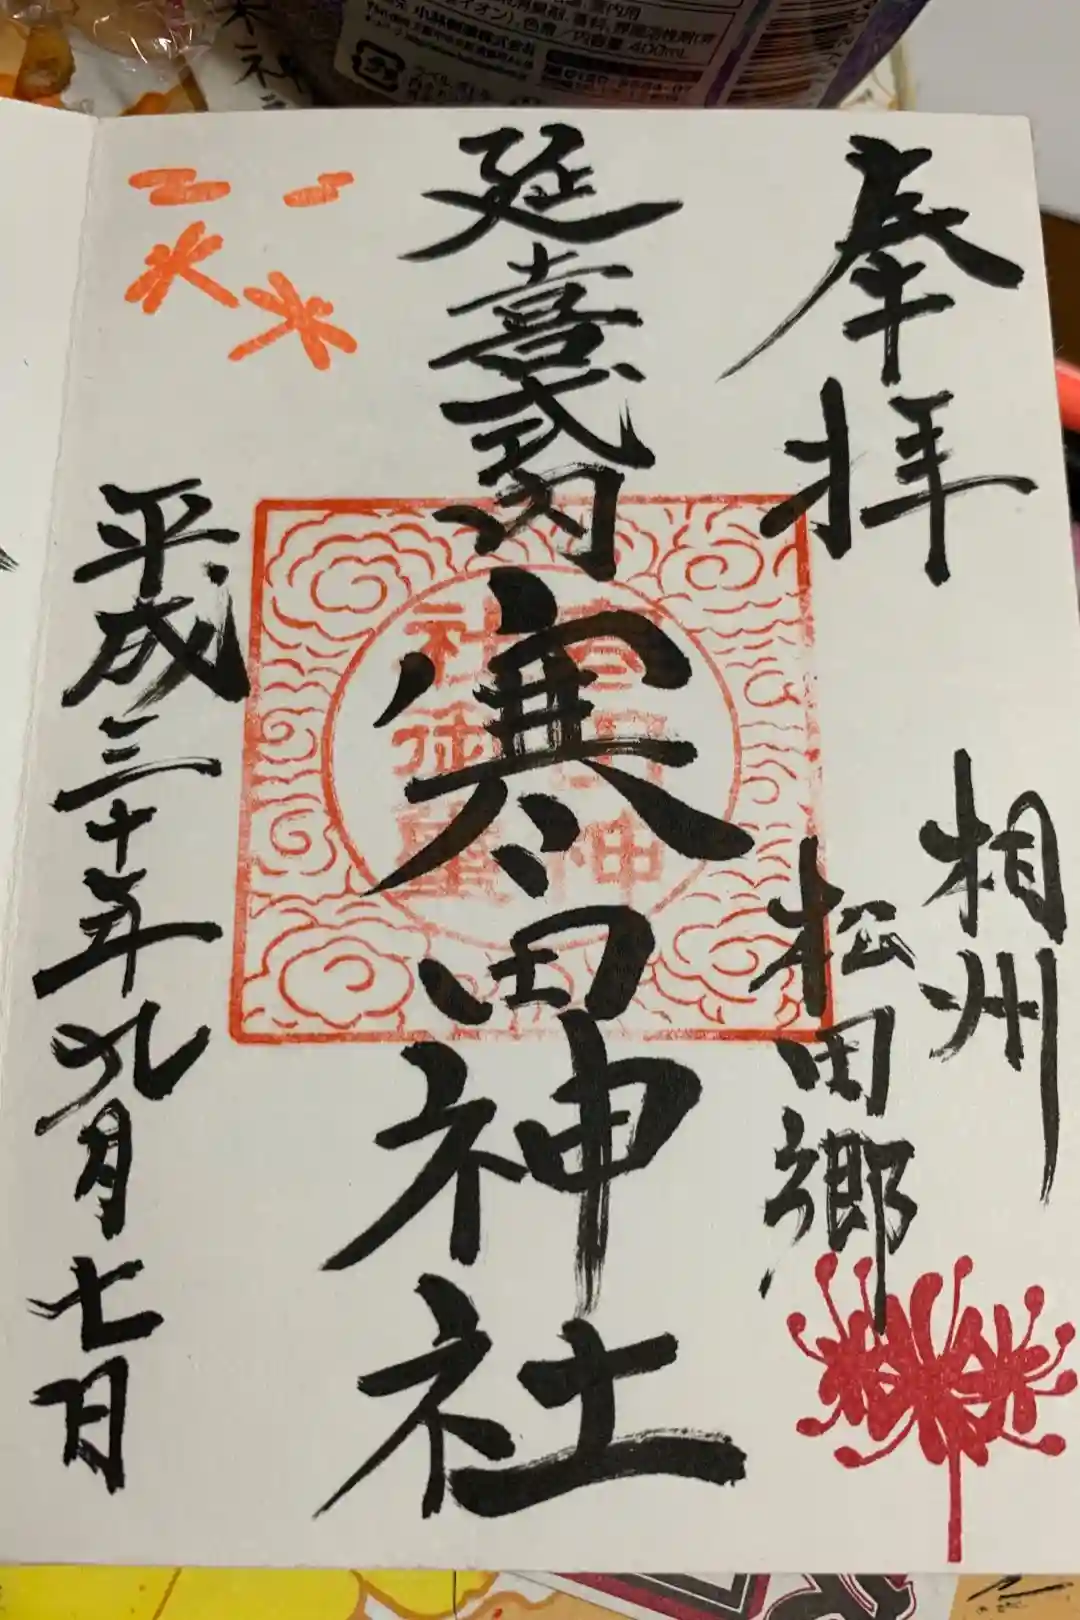 奉拝
相州
松田郷
延喜式内
寒田神社
平成三十年九月七日
寒田神
社御璽
小林製薬株式会社
内容量 400mL